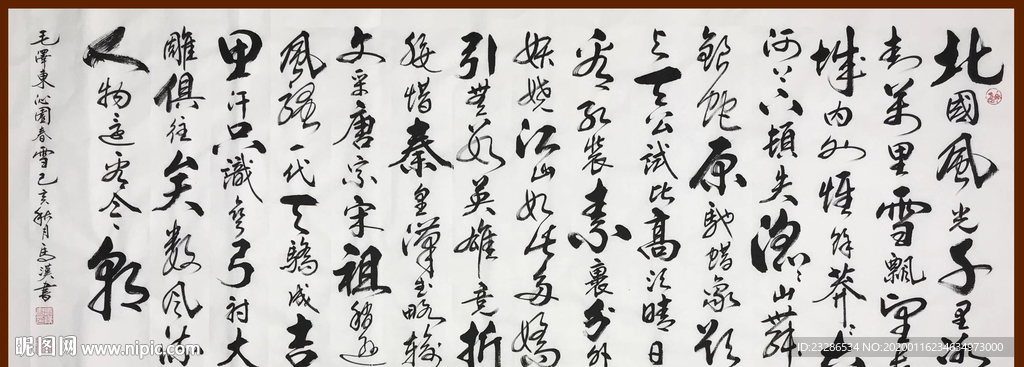 北國風光千里冰
封萬里雪飄望長
城内外惟餘莽莽大
河上下頓失滔滔山舞
銀蛇原馳蜡象欲
与天公試比高須晴日
看紅裝素裹分外
妖嬈江山如此多嬌
引無數英雄竞折
腰惜秦皇漢武略輸
文采唐宗宋祖稍遜
風騷一代天驕成吉
思汗只識彎弓射大
雕俱往矣數風流
人物還看今朝
毛澤東沁園春雪己亥秋月馬漢書
昵图网 www.nipic.com
ID:23286534 NO:20200116234634973000